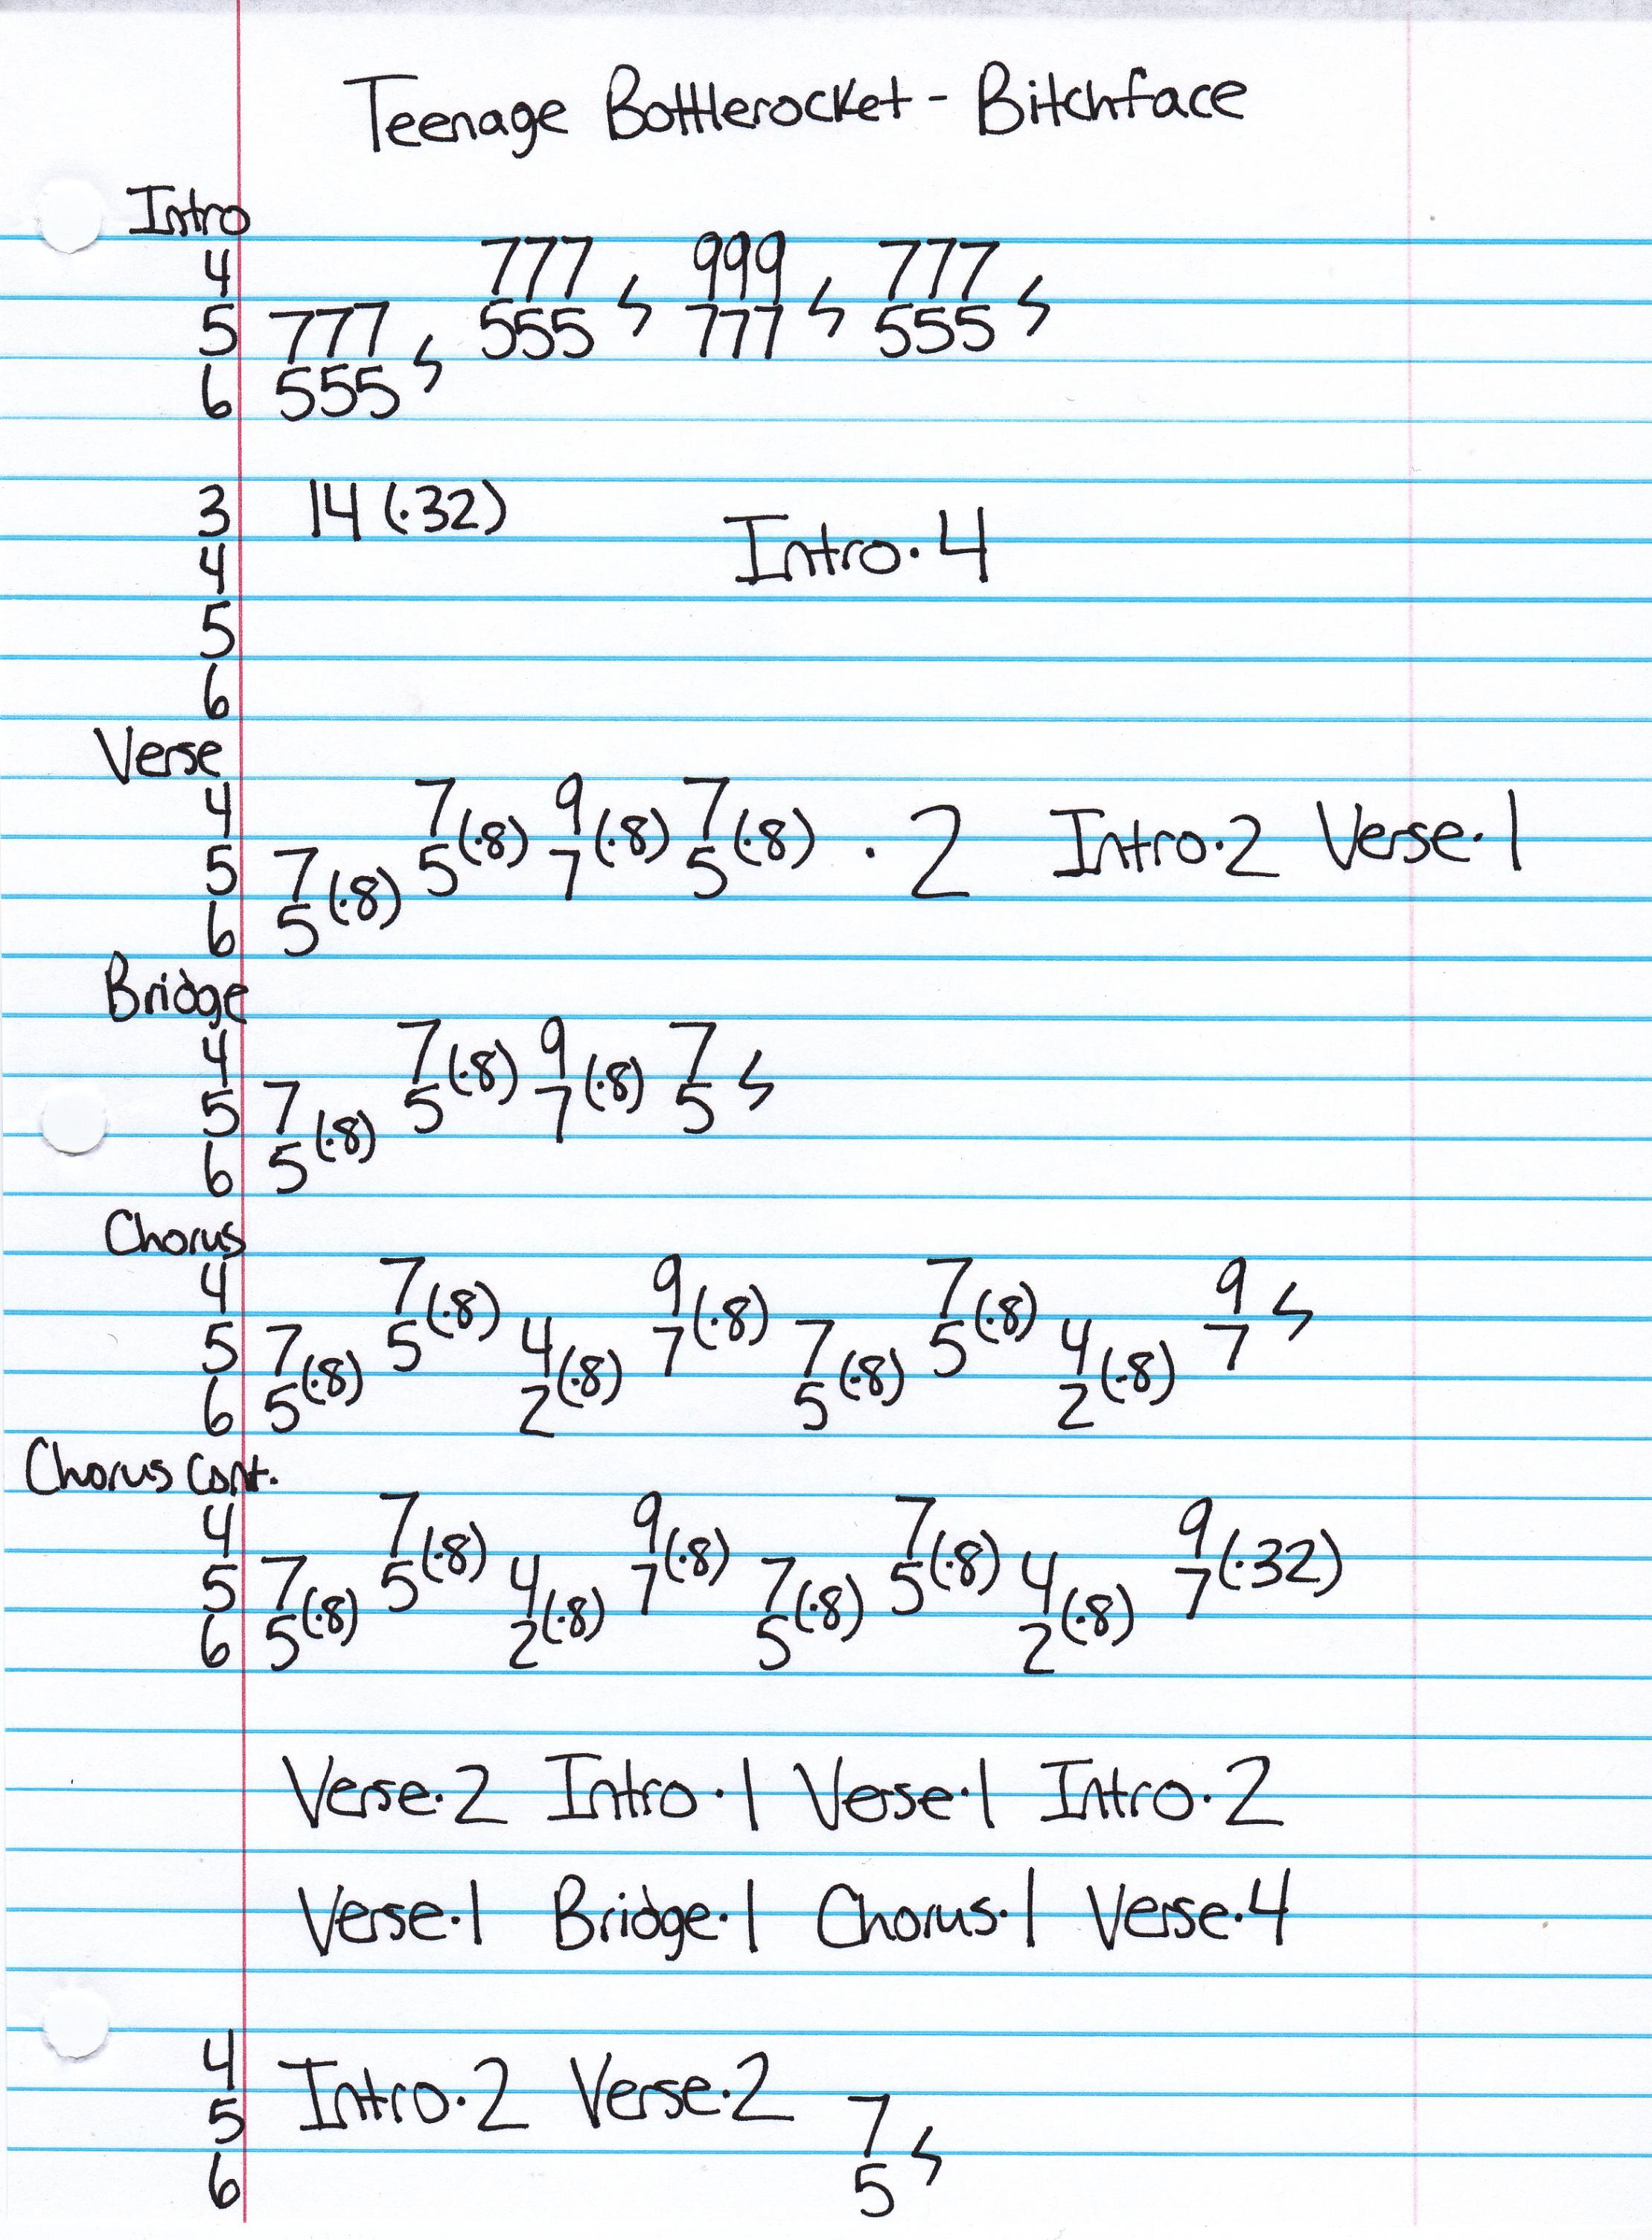 Teenage Bottlerocket - Bitchface
Intro
4 777 ϟ 999 ϟ 777 ϟ
5 777 ϟ 555 777 555
6 555
3 14 (·32)
Intro·4
4
5
6
Verse
4 7(·8) 9(·8) 7(·8)
5 7(·8) 5 7 5 · 2 Intro·2 Verse·1
6 5
Bridge
4 7(·8) 9(·8) 7 ϟ
5 7(·8) 5 7 5
6 5
Chorus
4 7(·8) 9(·8) 7(·8) 9 ϟ
5 7(·8) 5 4(·8) 7 7(·8) 5 4(·8) 7
6 5 2 5 2
Chorus Cont.
4 7(·8) 9(·8) 7(·8) 9(·32)
5 7(·8) 5 4(·8) 7 7(·8) 5 4(·8) 7
6 5 2 5 2
Verse·2 Intro·1 Verse·1 Intro·2
Verse·1 Bridge·1 Chorus·1 Verse·4
4 Intro·2 Verse·2
5 7 ϟ
6 5